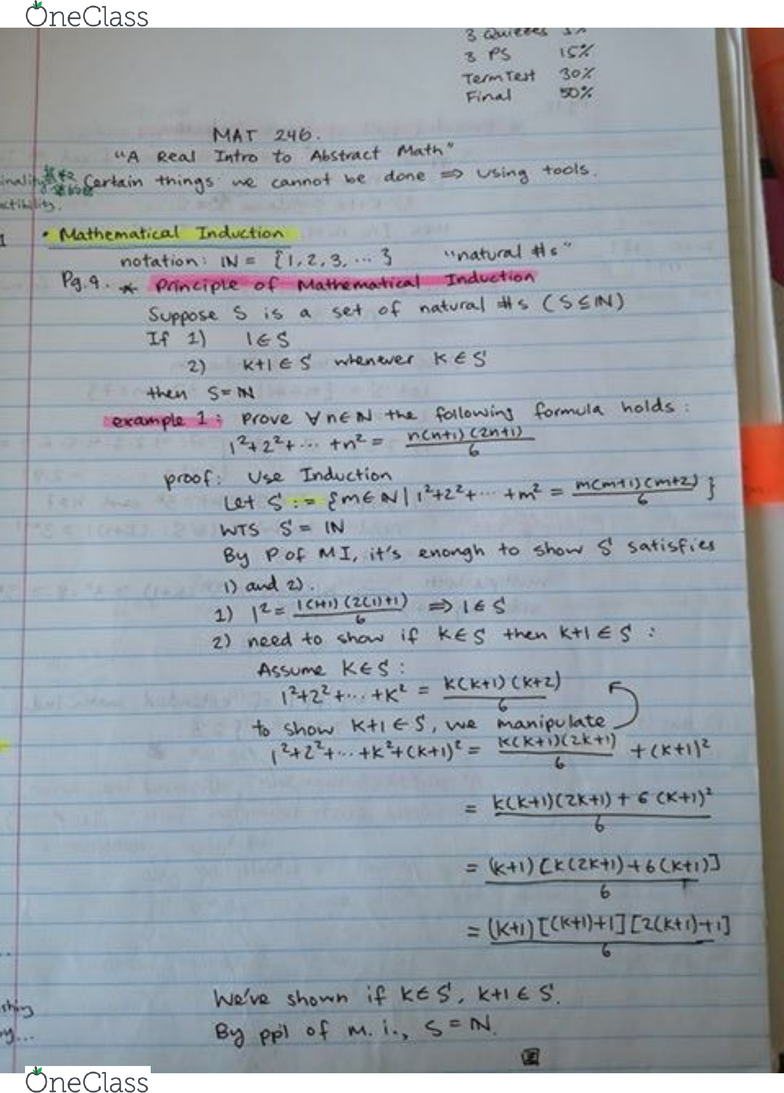 OneClass
3 Quizzes 5%
3 PS 15%
Term Test 30%
Final 50%
MAT 246.
"A Real Intro to Abstract Math"
Certain things we cannot be done ⇒ using tools.
• Mathematical Induction
notation: ℕ = {1, 2, 3, ... } "natural #s"
Pg.9. * Principle of Mathematical Induction
Suppose S is a set of natural #s (S ⊆ ℕ)
If 1) 1 ∈ S
2) k+1 ∈ S whenever k ∈ S
then S = ℕ
example 1: Prove ∀ n ∈ ℕ the following formula holds:
1²+2²+ ... +n² = n(n+1)(2n+1)/6
proof: Use Induction
Let S := {m ∈ ℕ | 1²+2²+ ... +m² = m(m+1)(m+2)/6 }
WTS S = ℕ
By P of MI, it's enongh to show S satisfies
1) and 2).
1) 1² = 1(1+1)(2(1)+1)/6 ⇒ 1 ∈ S
2) need to show if k ∈ S then k+1 ∈ S :
Assume k ∈ S :
1²+2²+ ... +k² = k(k+1)(k+2)/6
to show k+1 ∈ S, we manipulate
1²+2²+ ... +k²+(k+1)² = k(k+1)(2k+1)/6 + (k+1)²
= k(k+1)(2k+1) + 6(k+1)²/6
= (k+1)[k(2k+1)+6(k+1)]/6
= (k+1)[(k+1)+1][2(k+1)+1]/6
We've shown if k ∈ S, k+1 ∈ S.
By ppl of m.i., S = ℕ.
OneClass